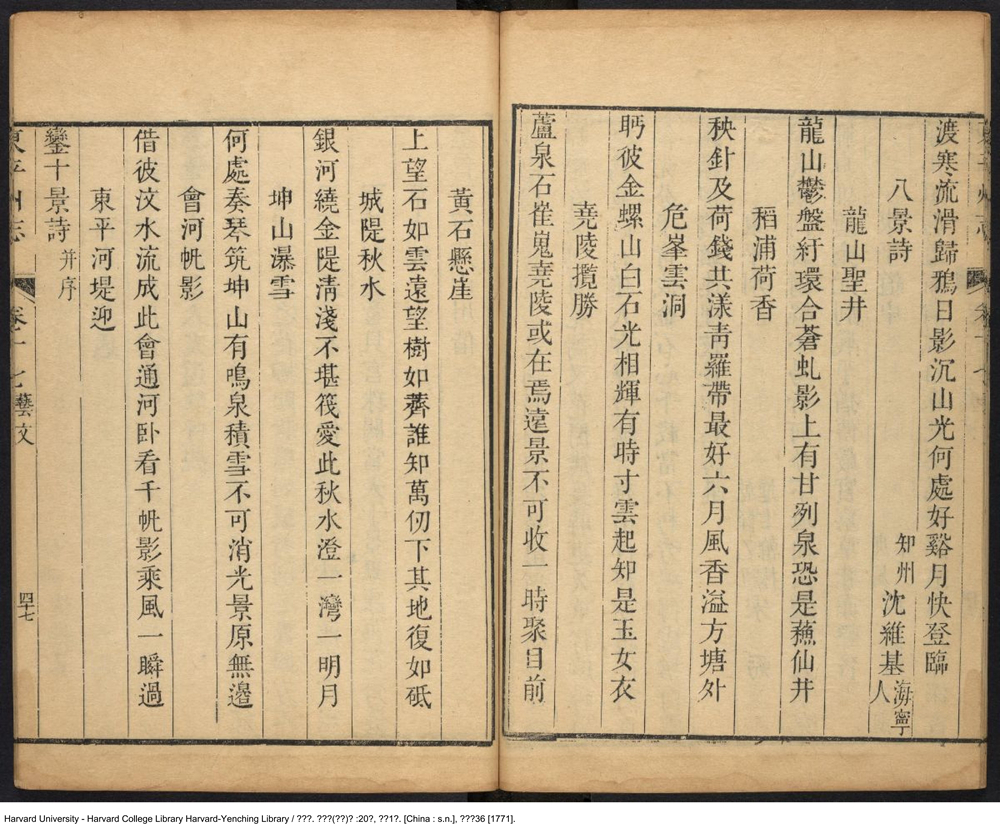 渡寒流滑歸鴉日影沉山光何處好谿月快登臨
八景詩
知州沈維基海寧人
龍山聖井
龍山鬱盤紆環合蒼虬影上有甘列泉恐是蘓仙井
稻浦荷香
秧針及荷錢共漾靑羅帶最好六月風香溢方塘外
危峯雲洞
眄彼金螺山白石光相輝有時寸雲起知是玉女衣
堯陵攬勝
蘆泉石崔嵬堯陵或在焉遠景不可收一時聚目前
黃石懸崖
上望石如雲遠望樹如薺誰知萬仞下其地復如砥
城隄秋水
銀河繞金隄淸淺不堪筏愛此秋水澄一灣一明月
坤山瀑雪
何處奏琴筑坤山有鳴泉積雪不可消光景原無邉
會河帆影
借彼汶水流成此會通河卧看千帆影乘風一瞬過
東平河堤迎
鑾十景詩并序
東平州志 卷十七藝文 四十七
Harvard University - Harvard College Library Harvard-Yenching Library / ???. ???(??)? :20?, ??1?. [China : s.n.], ???36 [1771].